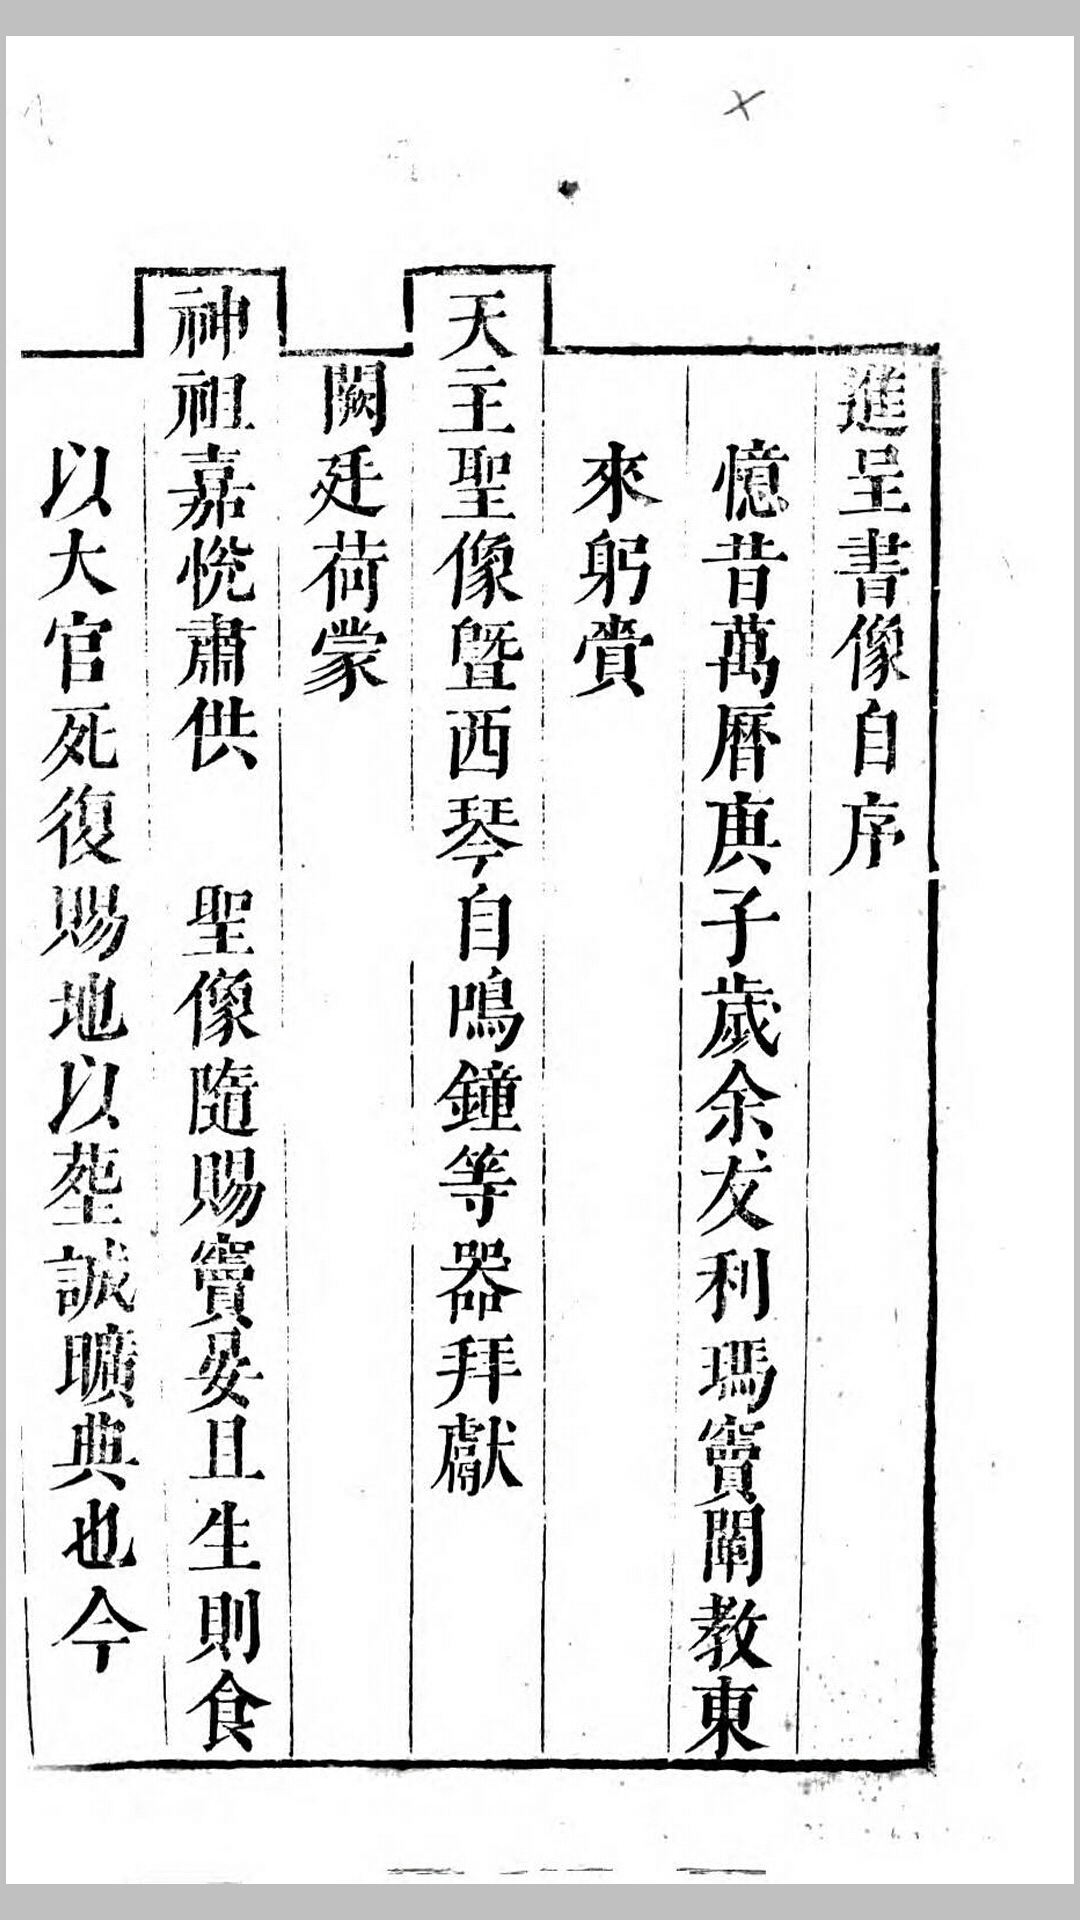 進呈書像自序
憶昔萬曆庚子歲余友利瑪竇闡教東
來躬賫
天主聖像曁西琴自鳴鐘等器拜獻
闕廷荷蒙
神祖嘉悅肅供　聖像隨賜竇晏且生則食
以大官死復賜地以塟誠曠典也今